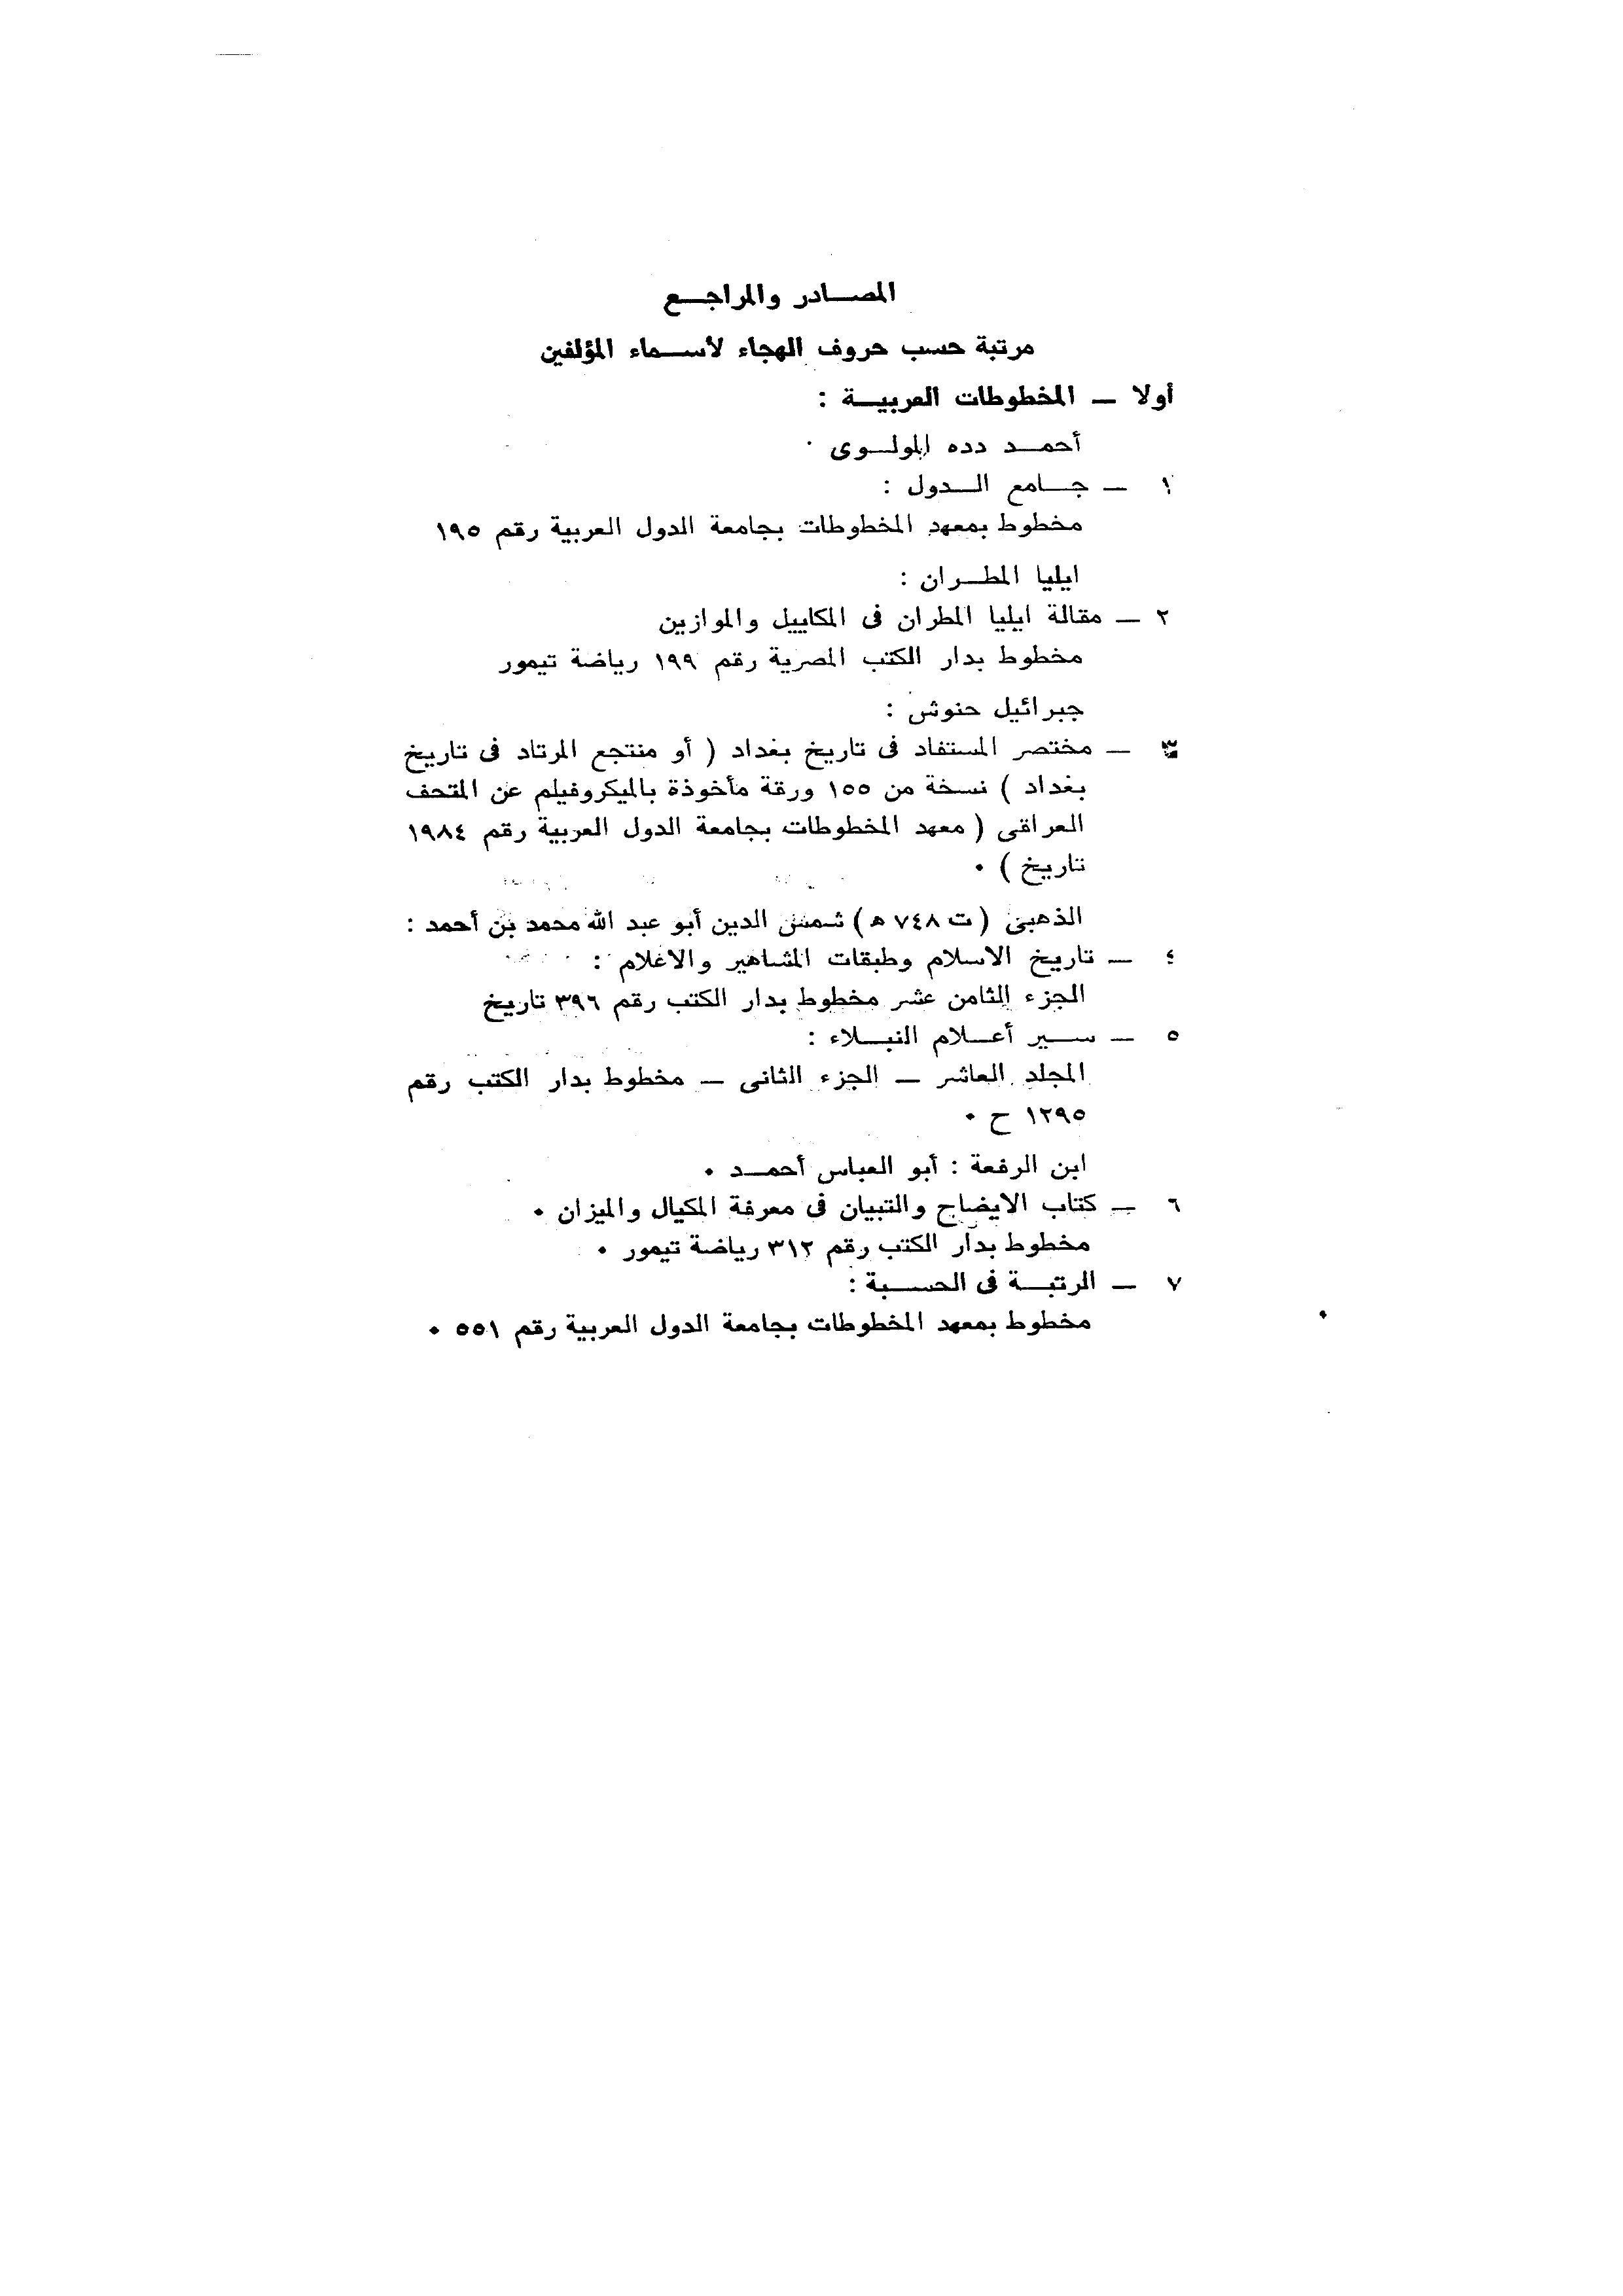 المصادر والمراجع
مرتبة حسب حروف الهجاء لأسماء المؤلفين
أولا — المخطوطات العربية :
أحمد دده المولوى ٠
١ — جامع الدول :
مخطوط بمعهد المخطوطات بجامعة الدول العربية رقم ١٩٥
ايليا المطران :
٢ — مقالة ايليا المطران فى المكاييل والموازين
مخطوط بدار الكتب المصرية رقم ١٩٩ رياضة تيمور
جبرائيل حنوش :
٣ — مختصر المستفاد فى تاريخ بغداد ( أو منتجع المرتاد فى تاريخ
بغداد ) نسخة من ١٥٥ ورقة مأخوذة بالميكروفيلم عن المتحف
العراقى ( معهد المخطوطات بجامعة الدول العربية رقم ١٩٨٤
تاريخ ) ٠
الذهبى ( ت ٧٤٨ ه ) شمس الدين أبو عبد الله محمد بن أحمد :
٤ — تاريخ الاسلام وطبقات المشاهير والاعلام :
الجزء الثامن عشر مخطوط بدار الكتب رقم ٣٩٦ تاريخ
٥ — سير أعلام النبلاء :
المجلد العاشر — الجزء الثانى — مخطوط بدار الكتب رقم
١٢٩٥ ح ٠
ابن الرفعة : أبو العباس أحمد ٠
٦ — كتاب الايضاح والتبيان فى معرفة المكيال والميزان ٠
مخطوط بدار الكتب رقم ٣١٢ رياضة تيمور ٠
٧ — الرتبة فى الحسبة :
مخطوط بمعهد المخطوطات بجامعة الدول العربية رقم ٥٥١ ٠